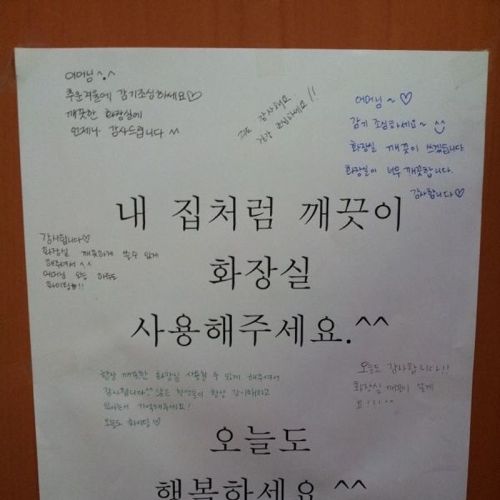 어머님 ^.^
추운겨울에 감기조심하세요♡
깨끗한 화장실에
언제나 감사드립니다 ^^
저도 감사해요
건강 조심하세요!!
어머님~♡
감기 조심하세요~
화장실 깨끗이 쓰겠습니다
화장실이 너무 깨끗합니다.
감사합니다♡
내 집처럼 깨끗이
화장실
사용해주세요.^^
감사합니다♡
화장실 깨끗하게 쓸수 있게
해주셔서 ^^
어머님 오늘 하루도
파이팅!!
항상 깨끗한 화장실 사용할 수 있게 해주셔서
감사합니다^^ 많은 학생들이 항상 감사해하고
있다는거 기억해주세요!
오늘도 화이팅♡
오늘도 감사합니다!!
화장실 깨끗이 쓸게
요!!^^
오늘도
행복하세요^^